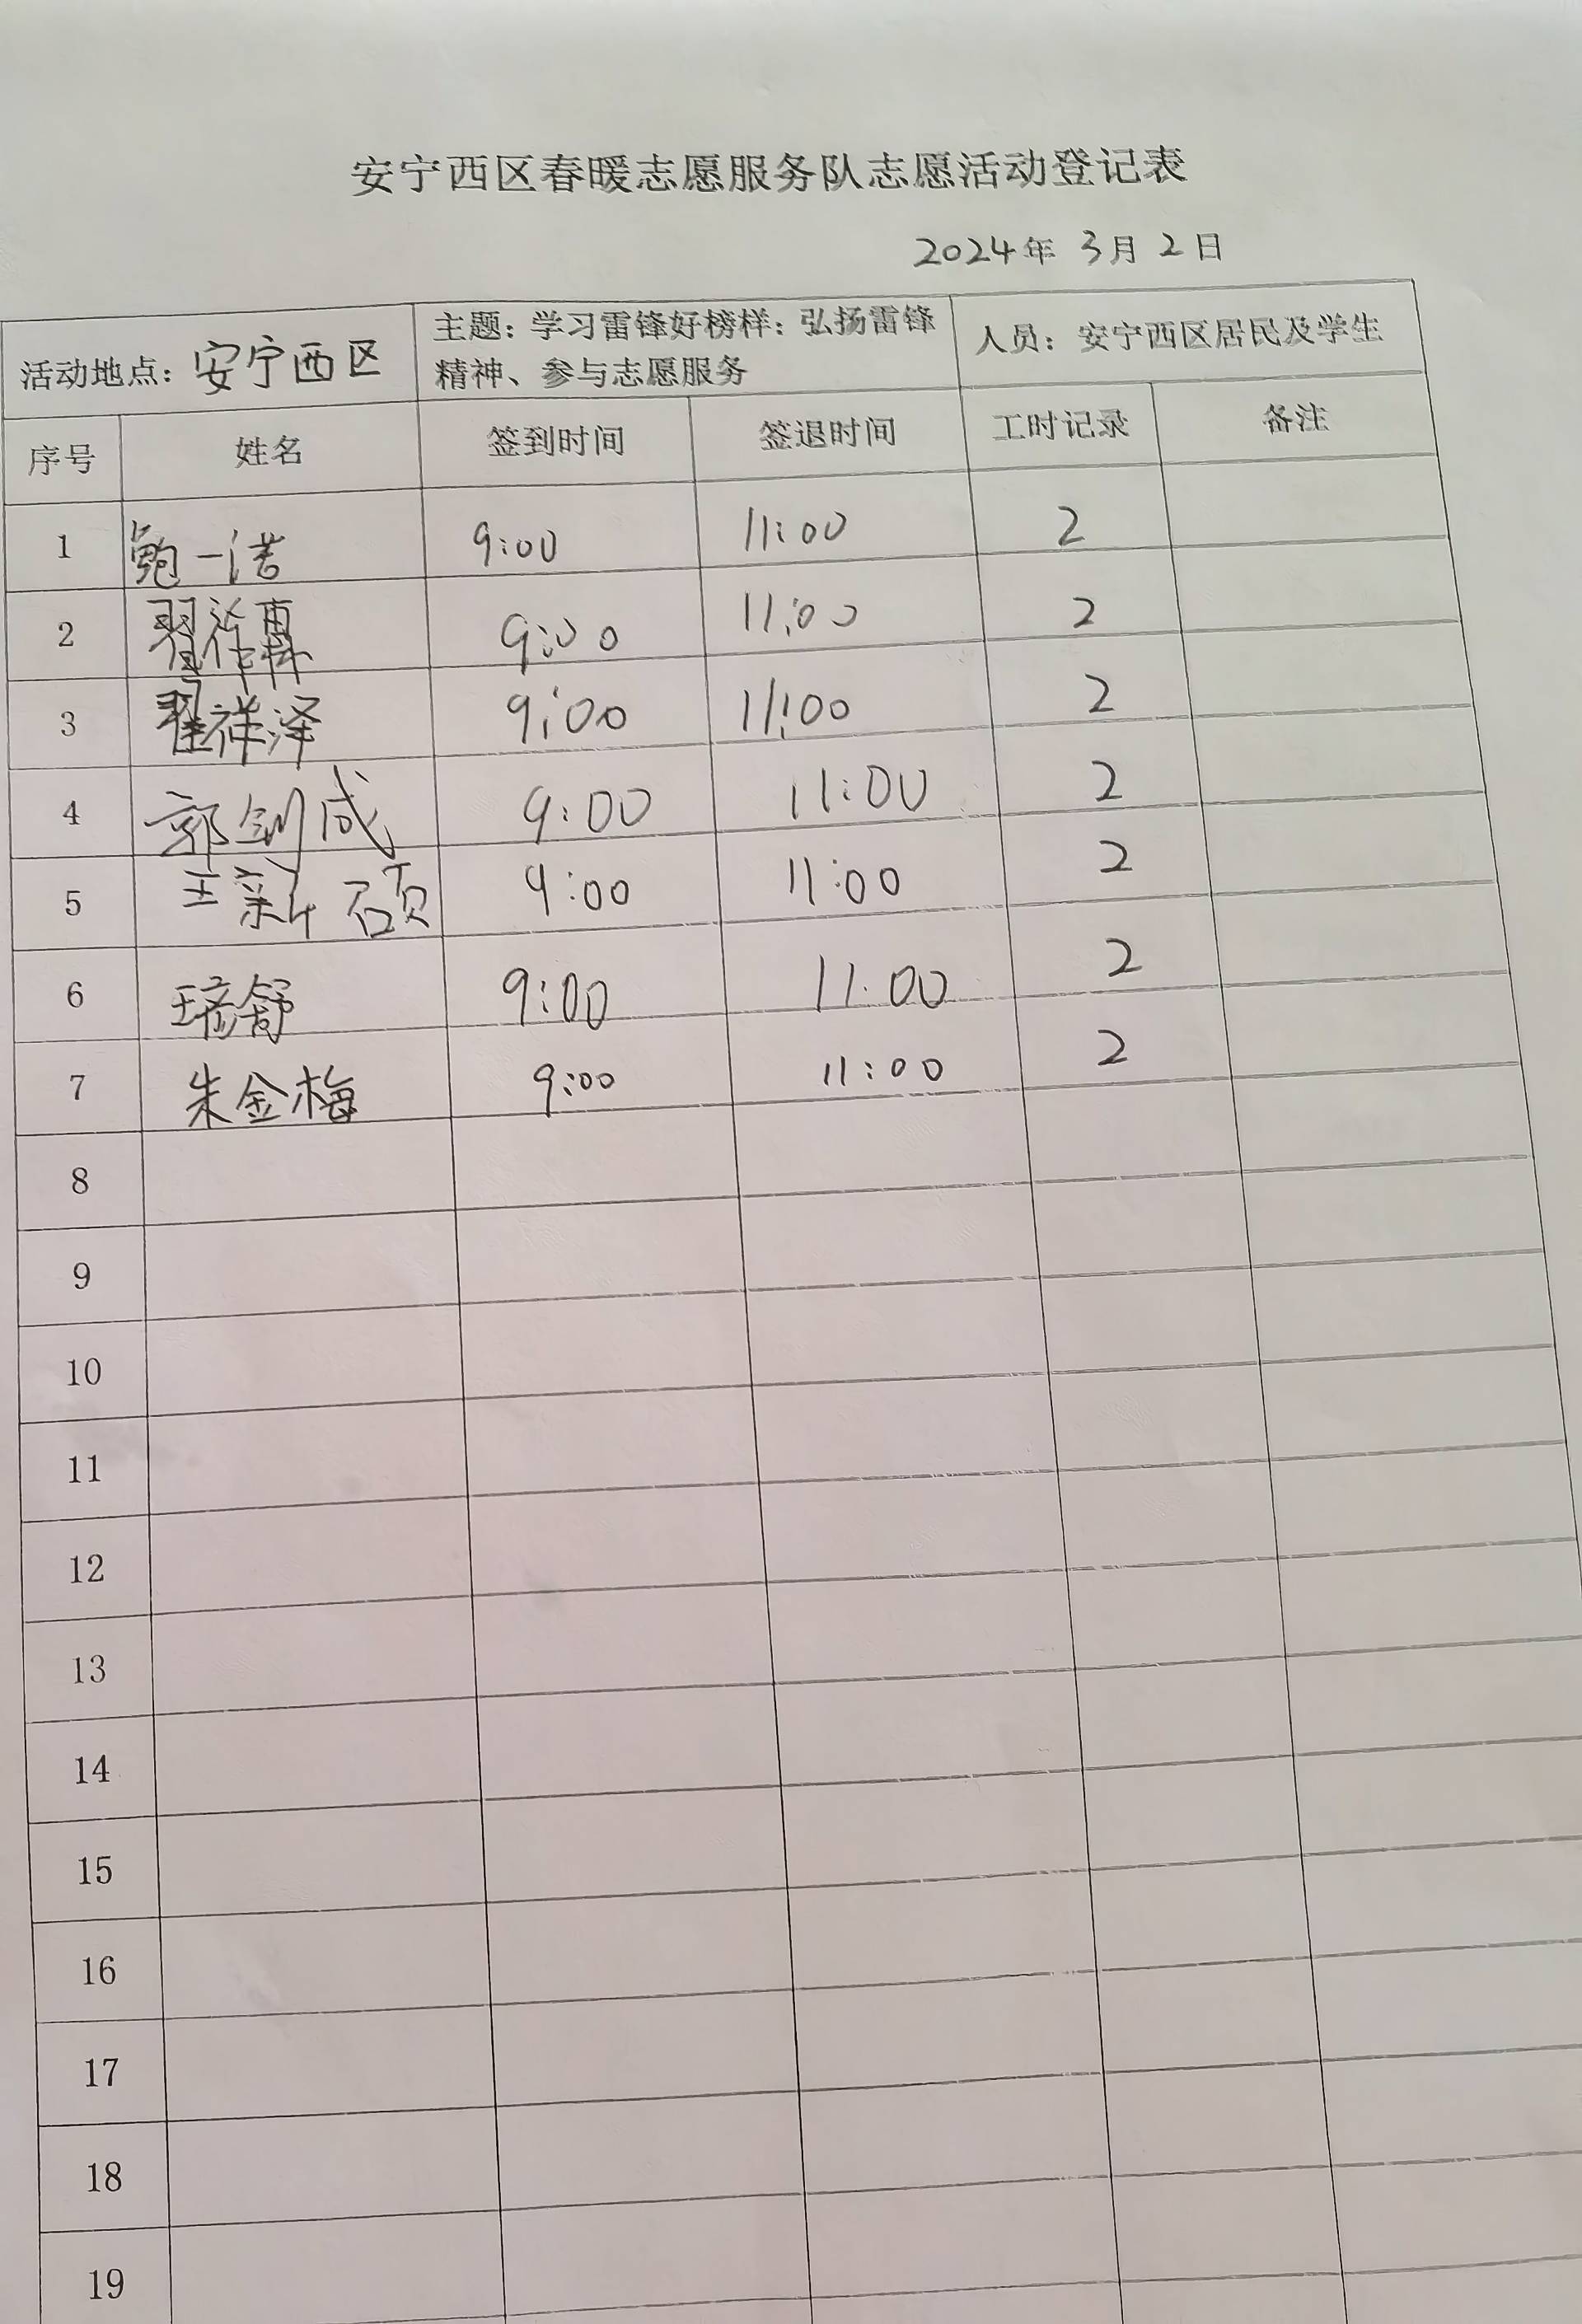 安宁西区春暖志愿服务队志愿活动登记表
2024年 3月 2日
活动地点：安宁西区 主题：学习雷锋好榜样：弘扬雷锋精神、参与志愿服务 人员：安宁西区居民及学生
序号 姓名 签到时间 签退时间 工时记录 备注
1 鲍一诺 9:00 11:00 2
2 9:00 11:00 2
3 翟祥泽 9:00 11:00 2
4 郭剑成 9:00 11:00 2
5 王新硕 9:00 11:00 2
6 9:00 11:00 2
7 朱金梅 9:00 11:00 2
8
9
10
11
12
13
14
15
16
17
18
19